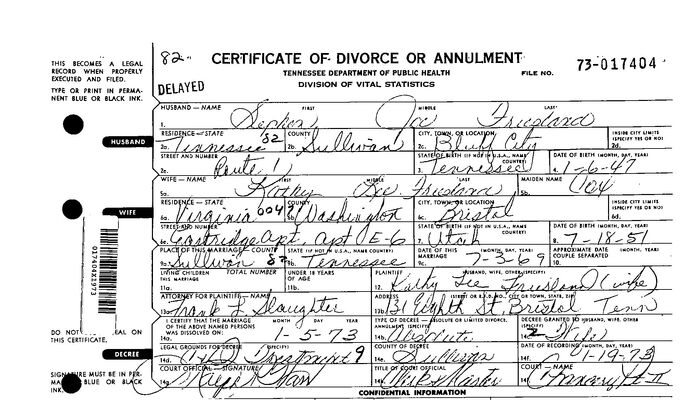 82- CERTIFICATE OF DIVORCE OR ANNULMENT
TENNESSEE DEPARTMENT OF PUBLIC HEALTH FILE NO. 73-017404
DIVISION OF VITAL STATISTICS
THIS BECOMES A LEGAL
RECORD WHEN PROPERLY
EXECUTED AND FILED.
TYPE OR PRINT IN PERMA-
NENT BLUE OR BLACK
INK.
DELAYED
HUSBAND — NAME FIRST MIDDLE LAST
1. Joe
HUSBAND
RESIDENCE — STATE COUNTY CITY, TOWN, OR LOCATION INSIDE CITY LIMITS
(SPECIFY YES OR NO)
2a. Tennessee 82 2b. Sullivan 2c. Bluff City 2d.
STREET AND NUMBER STATE OF BIRTH (IF NOT IN U.S.A., NAME COUNTRY) DATE OF BIRTH (MONTH, DAY, YEAR)
2e. Route 1 3. Tennessee 4. 1-6-47
WIFE — NAME FIRST MIDDLE LAST MAIDEN NAME
5a. Kathy 5b.
WIFE
RESIDENCE — STATE COUNTY CITY, TOWN, OR LOCATION INSIDE CITY LIMITS
(SPECIFY YES OR NO)
6a. Virginia 0047 6b. Washington 6c. Bristol 6d.
STREET AND NUMBER STATE OF BIRTH (IF NOT IN U.S.A., NAME COUNTRY) DATE OF BIRTH (MONTH, DAY, YEAR)
6e. Eastridge Apt. apt E-6 7. Utah 8. 7-18-51
PLACE OF THIS MARRIAGE — COUNTY STATE (IF NOT IN U.S.A., NAME COUNTRY) DATE OF THIS MARRIAGE (MONTH, DAY, YEAR) APPROXIMATE DATE COUPLE SEPARATED (MONTH, DAY, YEAR)
9a. Sullivan 82 9b. Tennessee 9c. 7-3-69 10.
LIVING CHILDREN THIS MARRIAGE TOTAL NUMBER UNDER 18 YEARS OF AGE PLAINTIFF HUSBAND, WIFE, OTHER (SPECIFY)
11a. 11b. 12. Kathy Lee (wife)
ATTORNEY FOR PLAINTIFF — NAME ADDRESS (STREET OR R.F.D. NO., CITY OR TOWN, STATE, ZIP)
13a. Frank L Slaughter 13b. Eighth St. Bristol Tenn
I CERTIFY THAT THE MARRIAGE OF THE ABOVE NAMED PERSONS WAS DISSOLVED ON: MONTH DAY YEAR TYPE OF DECREE — ABSOLUTE OR LIMITED DIVORCE, ANNULMENT (SPECIFY)
14a. 1-5-73 14b. Absolute 14c. 2 Wife
DO NOT SEAL ON
THIS CERTIFICATE.
DECREE
LEGAL GROUNDS FOR DECREE (SPECIFY) COUNTY OF DECREE DATE OF RECORDING (MONTH, DAY, YEAR)
14d. Treatment 9 14e. Sullivan 14f. 1-19-73
SIGNATURE MUST BE IN PER-
MANENT BLUE OR BLACK
INK.
COURT OFFICIAL — SIGNATURE TITLE OF COURT OFFICIAL COURT — NAME
14g. 14h. 14i.
CONFIDENTIAL INFORMATION
017404221973